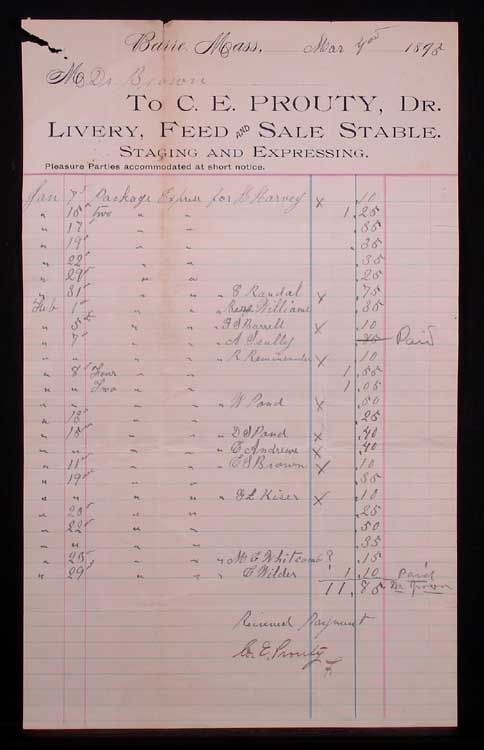 Barre, Mass, Mar 189
M Dr Brown
To C. E. PROUTY, DR.
LIVERY, FEED AND SALE STABLE.
STAGING AND EXPRESSING.
Pleasure Parties accommodated at short notice.
Jan 7 Package Express for Harvey x .10
" 15 two " " 1.25
" 17 " " .35
" 19 " " .35
" 22 " " .35
" 29 " " .25
" 31 " " " Randal x .75
Feb 1 " " " Williams .35
" 5 " " " Barrell x .10
" 7 " " " A Scully Paid
" " " " " R x .10
" 8 Four " " 1.55
" " Two " " 1.05
" " " " " W Pond x .50
" 13 " " .25
" 15 " " " D S Pond x .40
" " " " " C Andrews x .40
" 11 " " " Brown x .10
" 19 " " .35
" " " " " Kiser x .10
" 20 " " .25
" 22 " " .50
" " " " .35
" 25 " " " M C Whitcomb ? .15
" 29 " " " Wilder 1.10 Paid
11.85 Brown
Received Payment
C. E. Prouty